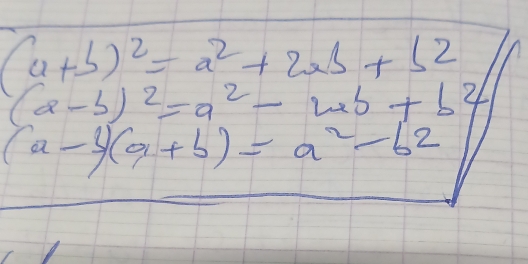 (a+b)² = a² + 2ab + b²
(a-b)² = a² - 2ab + b²
(a-b)(a+b) = a² - b²